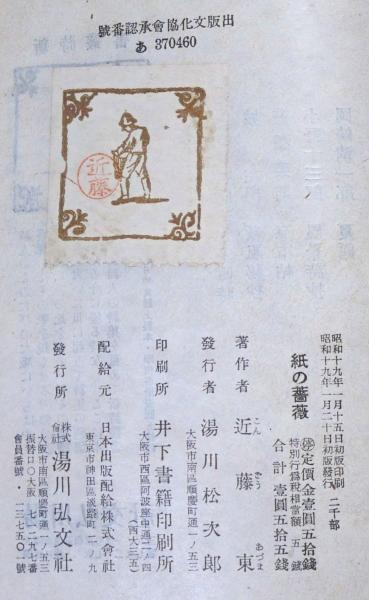 出版文化協會承認番號
あ 370460
近藤
昭和十九年一月十五日初版印刷 二千部
昭和十九年一月二十日初版發行
紙の薔薇
㊢定價金壹圓五拾錢
特別行爲税相當額 五錢
合計 壹圓五拾五錢
著作者 近藤東
こん どう あづま
發行者 湯川松次郎
大阪市南區順慶町通一ノ五三
印刷所 井下書籍印刷所
大阪市西區阿波座中通二ノ四
(西大三五)
配給元 日本出版配給株式會社
東京市神田區淡路町二ノ九
發行所 株式會社 湯川弘文社
大阪市南區順慶町通一ノ五三
振替口〇大阪七一二九七番
會員番號・一三七五〇一號